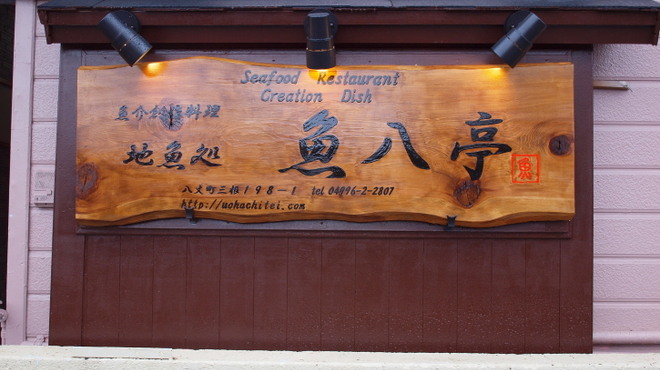 Seafood Restaurant
Creation Dish
魚介創作料理
地魚処
魚八亭
魚
八丈町三根198-1 tel 04996-2-2807
http://uohachitei.com